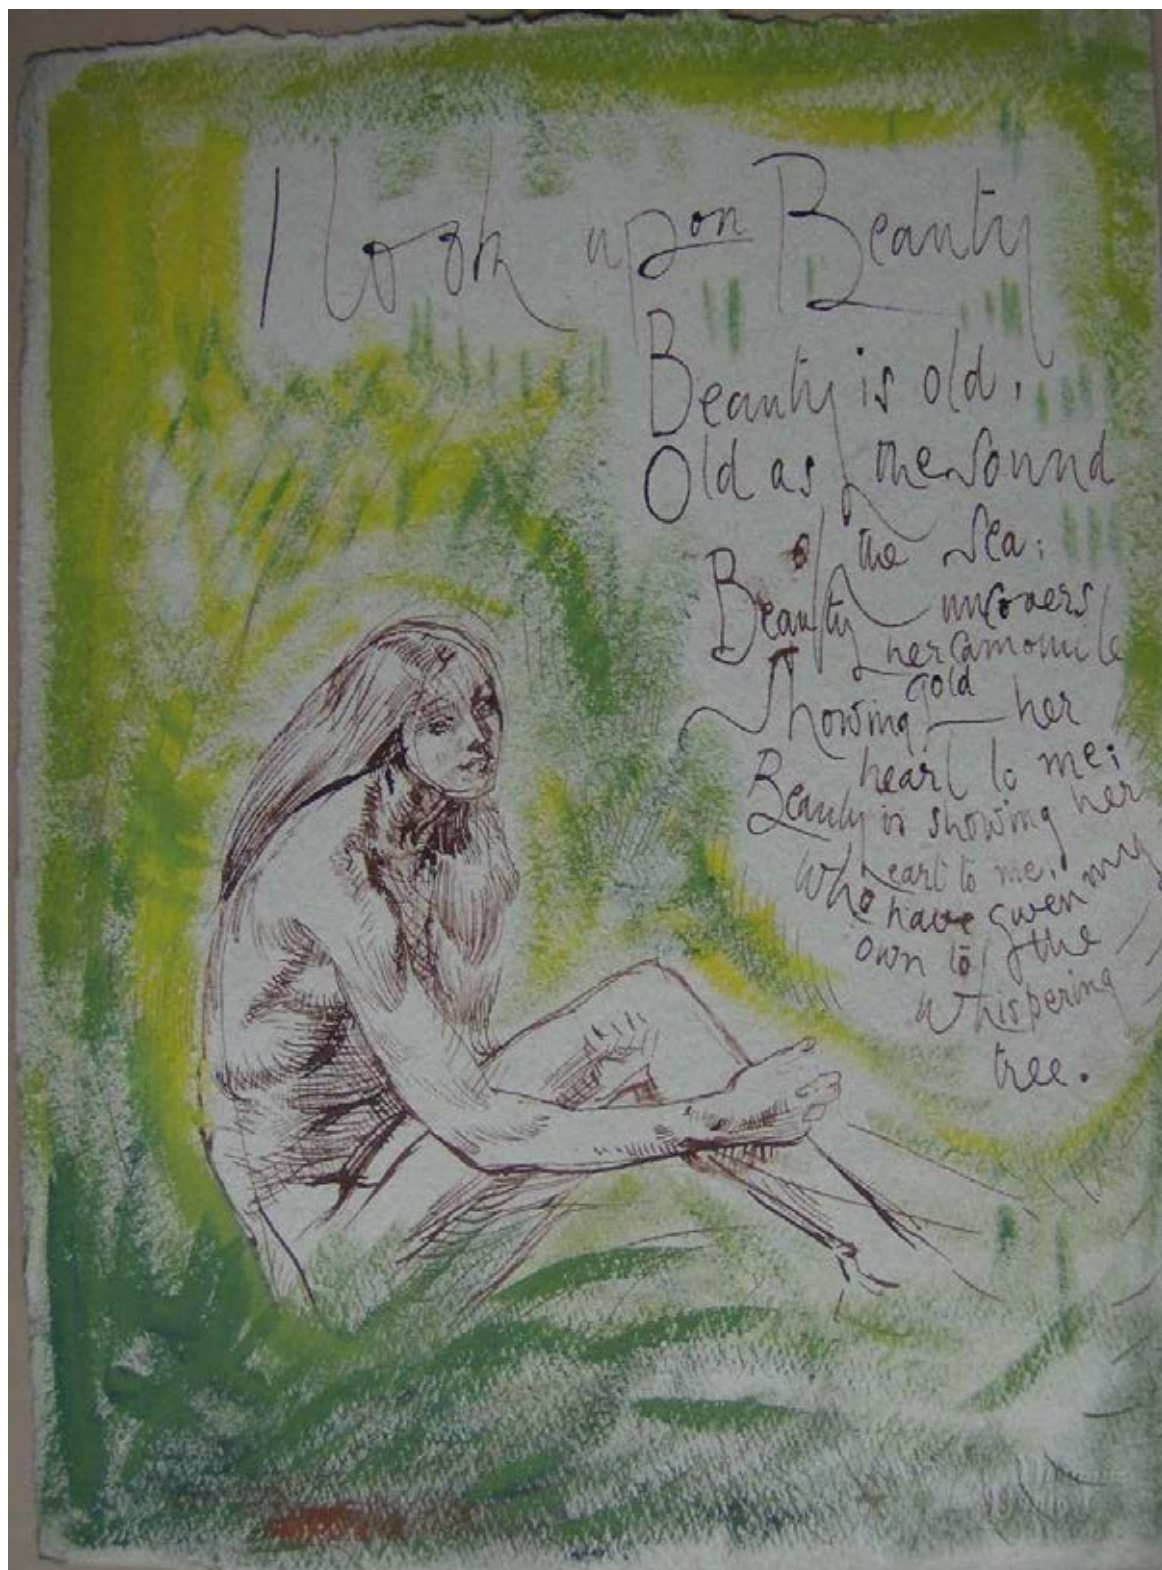 I look upon Beauty
Beauty is old,
Old as the sound
of the sea:
Beauty uncovers
her camomile
gold
Showing her
heart to me;
Beauty is showing her
heart to me,
Who have given my
own to the
whispering
tree.